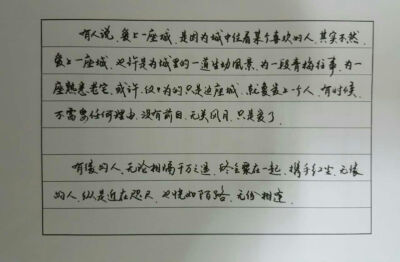 有人说，爱上一座城，是因为城中住着某个喜欢的人。其实不然，
爱上一座城，也许是为城里的一道生动风景，为一段青梅往事，为一
座熟悉老宅。或许，仅仅为的只是这座城。就像爱上一个人，有时候
不需要任何理由，没有前因，无关风月，只是爱了。
有缘的人，无论相隔千万之遥，终会聚在一起，携手红尘。无缘
的人，纵是近在咫尺，也恍如陌路，无份相逢。